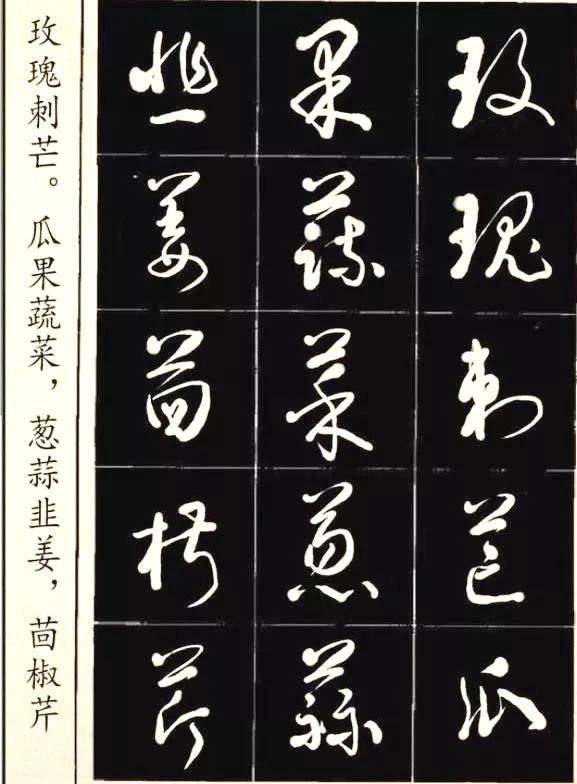 玫瑰刺芒
瓜
果蔬菜葱蒜
韭姜茴椒芹
玫瑰刺芒。瓜果蔬菜，葱蒜韭姜，茴椒芹